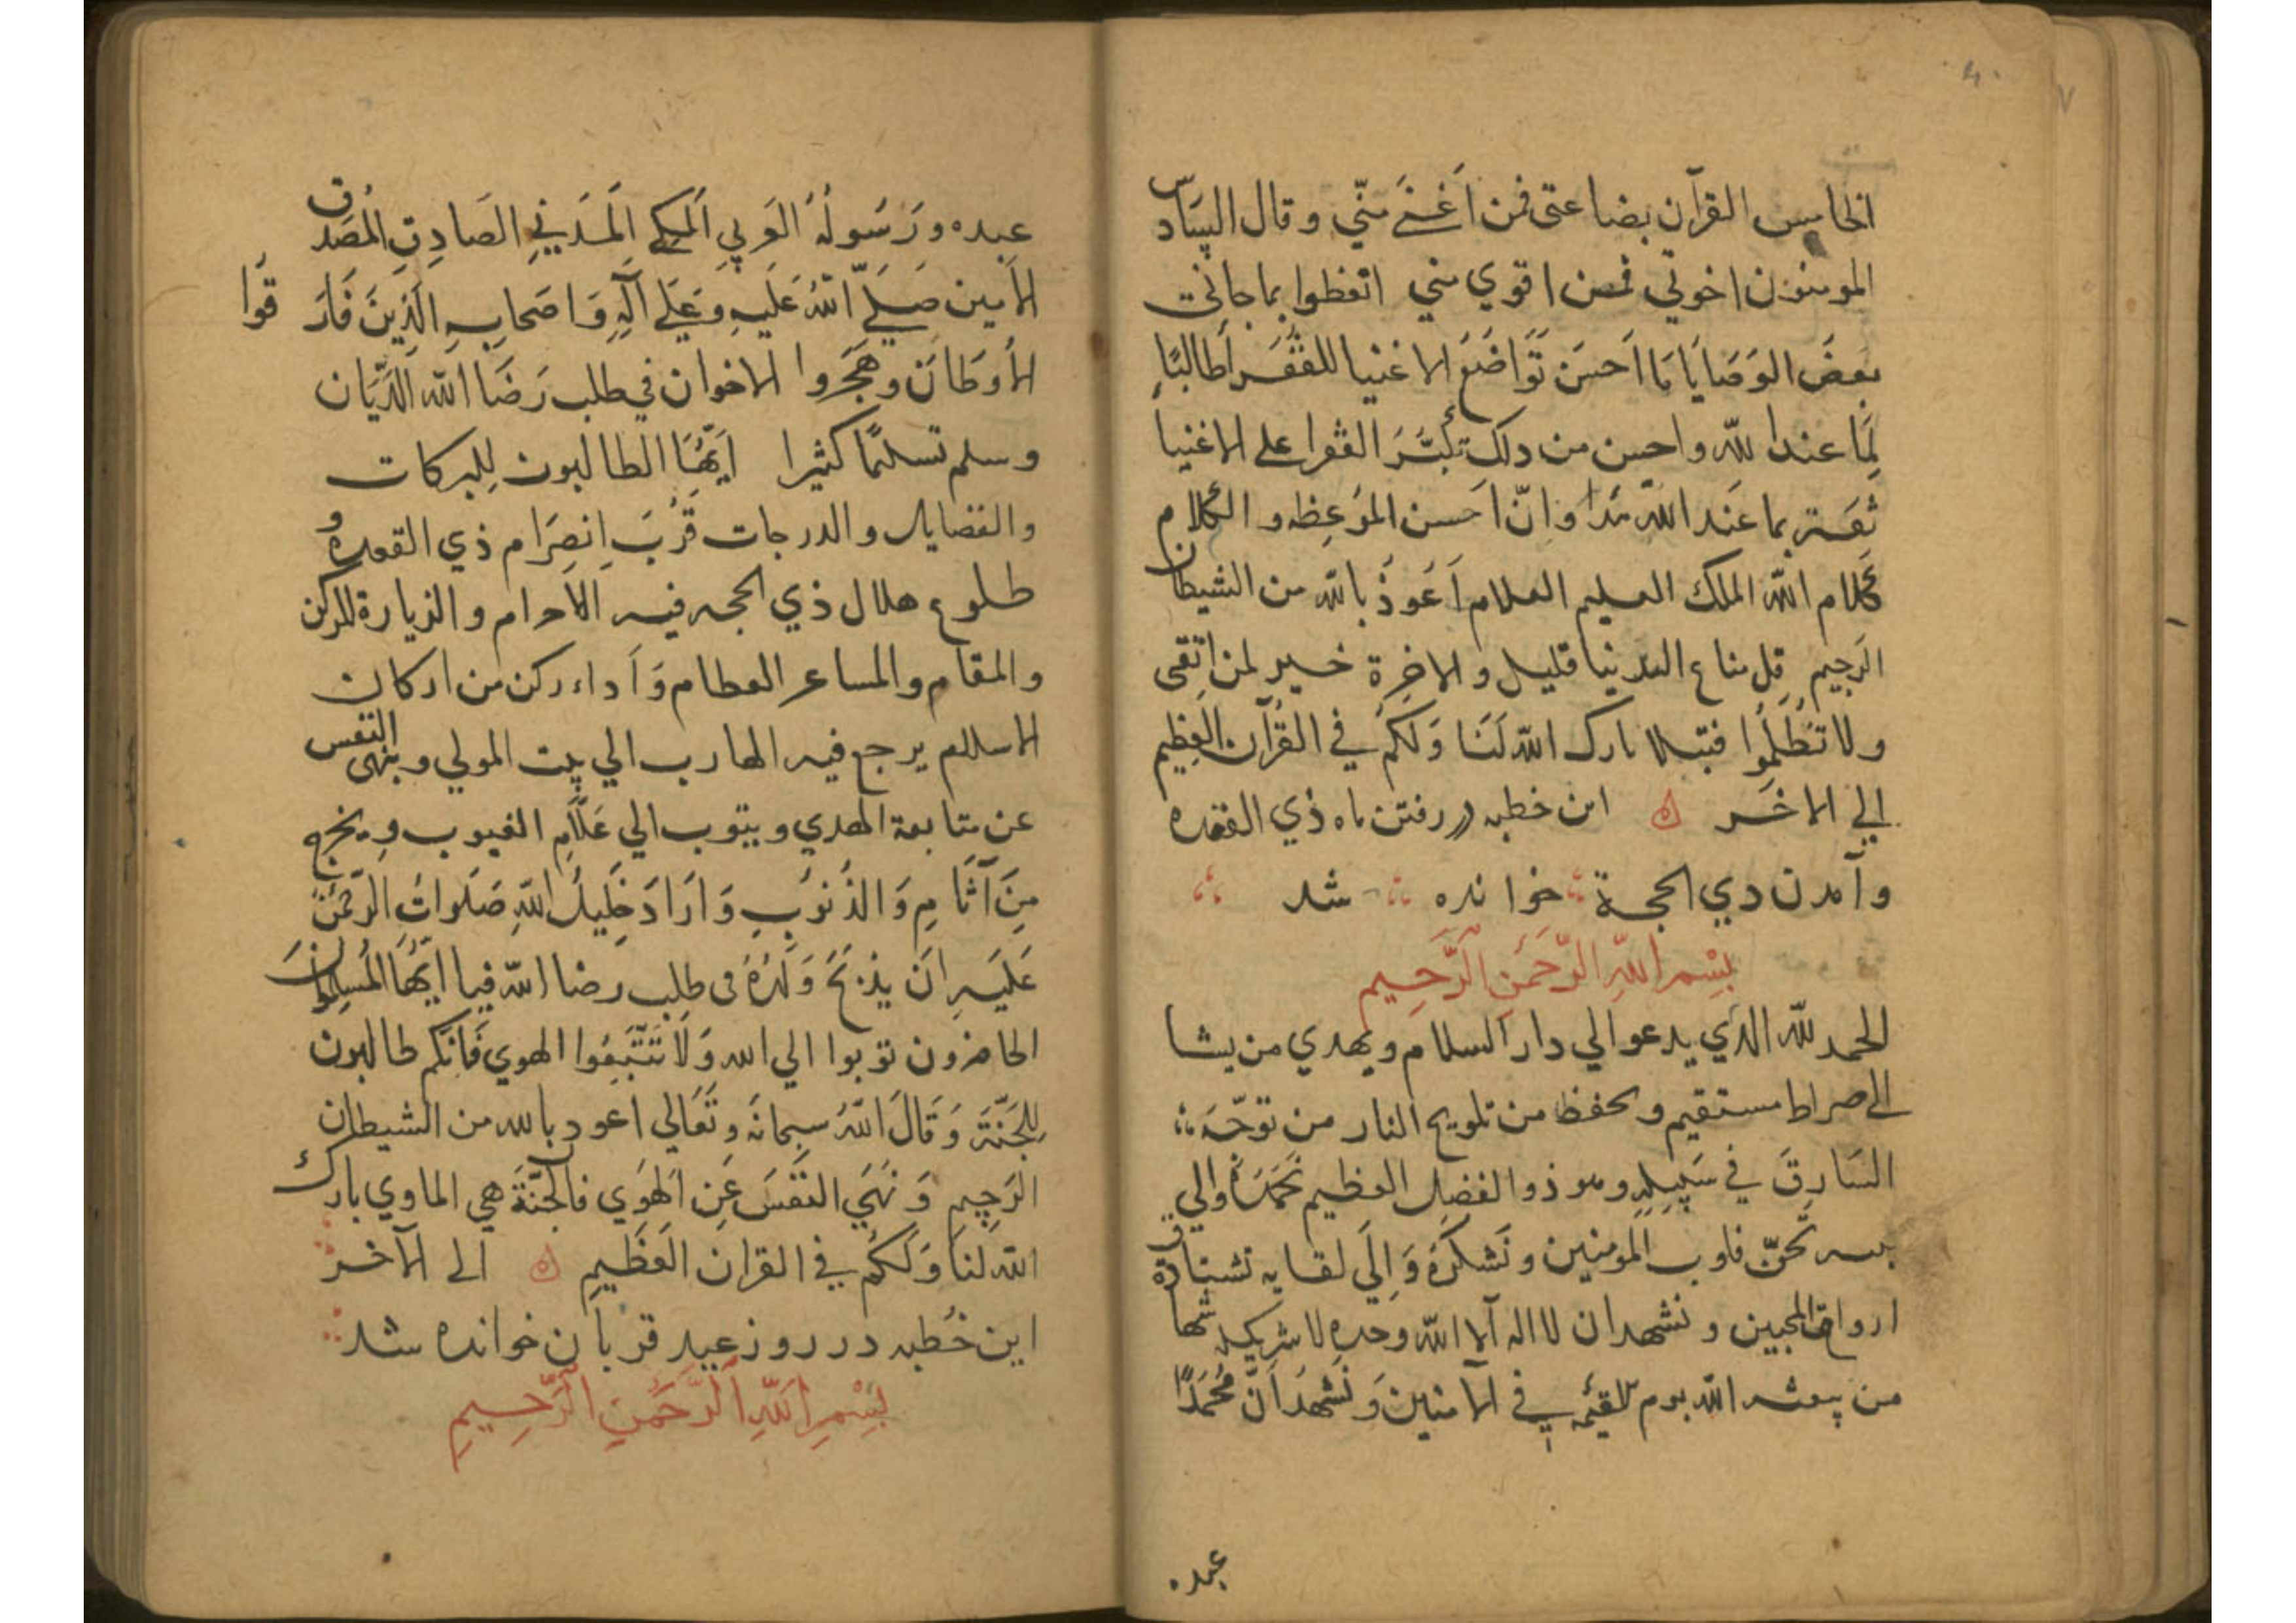 الخامس القرآن بضاعتى فمن اَغنَے مِنّي وقال السّادس
المومنون اخوتي فمن اقوي مني اتعظوا بما جاءت
بعضَ الوَصَايَا مَا اَحسَن تَوَاضَعَ الاغنيا للفُقَرا طالبًا
لِمَا عند الله واحسن من ذلک تَكَبَّرَ الفقرا علي الاغنيا
ثقة بما عَند الله وانّ اَحسن المَوعِظه و الکلام
کَلام الله الملک العليم العلام اَعَوذُ بالله من الشيطان
الرَجيم قل متاع الدنيا قليل و الاخِرة خير لمن اتقى
ولا تُظْلَمُوا فتيلا بارک الله لَنَا وَلکُم في القُرآن العظِيم
الي الاخَر ه این خطبه در رفتن ماه ذي القعده
وآمدن دي الحجة خوانده شد
بِسْمِ اللهِ الرَّحمَنِ الرَّحِيمِ
الحمد لله الذي يدعوالي دار السلام و يهدي من يشا
الے صراط مستقيم و يحفظ من تلويح النار من توجّه
السَارِقَ في سَبِيلِهِ وهو ذو الفضل العظيم نَحمَدُهُ والي
تحنّ قلوب المومنين ونَشکُرُهُ وَاِلَي لقايه تشتاق
ارواح المحبين و نشهد ان لااله الا الله وحده لا شريک له شهادة
من يبعثه الله يوم القيمه في الامنين وَ نَشهَدُ اَنّ مُحَمَدًا
عبده
عبده وَرَسَولُهُ العَرَبي المَکِے المَدَنِيِ الصَادِقِ المُصَدق
الامين صَلےَّ اللهُ عَلَيهِ وَ عَلَے آلِهِ وَ اصَحابِهِ الَذينَ فَارَقوا
الاَوطَانَ وهَجَروا الاخوان في طلب رَضَا الله الدَيّان
وسلم تسلمًا کثيرا اَيّهُا الطالبون لِلبرکات
والفضايل والدرجات قَرُبَ اِنصِرَام ذي القعده و
طلوع هلال ذي الحجه فيه الاحرام و الزيارة للرکن
والمقام والمساعر العطام وَ اَداء رکن من ارکان
الاسلام يرجع فيه الهارب الي بيت المولي وينهى النفس
عن متابعة الهدي ويتوب الي عَلاّمِ الغيوب و يخرج
مِنَ آثَامِ وَ الذُنَوُبِ وَ اَرَادَ خَلِيلُ اللهِ صَلَواتُ الرَحمنِ
عَلَيهِ اَن يذبحَ وَلَدَهُ فى طلب رضا الله فيا ايّهُا المُسلِمُونَ
الحاضرون توبوا الي الله وَلَا تَتّبَعُوا الهوي فَاِنَکُم طالبون
لِلجَنّةَ وَ قَالَ اللهُ سبحانَه و تَعَالي اعود بالله من الشيطان
الرَجِيمِ وَ نَهَي النَفَسَ عَنِ الهَوَي فان الجَنّةَ هي الماوي بارک
الله لنا وَلَکُم في القران العَظِيمِ ه الے الآخر
اين خُطبه در روز عيد قربان خوانده شد
بِسْمِ اللهِ الرَّحَمنِ الرَّحِيمِ